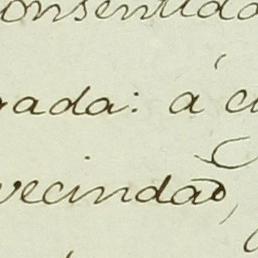 onsentida
gada: á c
vecindad,